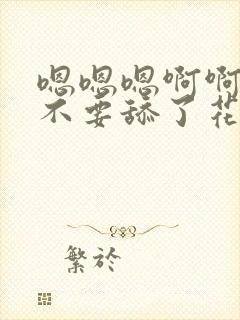 嗯嗯嗯啊啊
不要舔了花
繁於